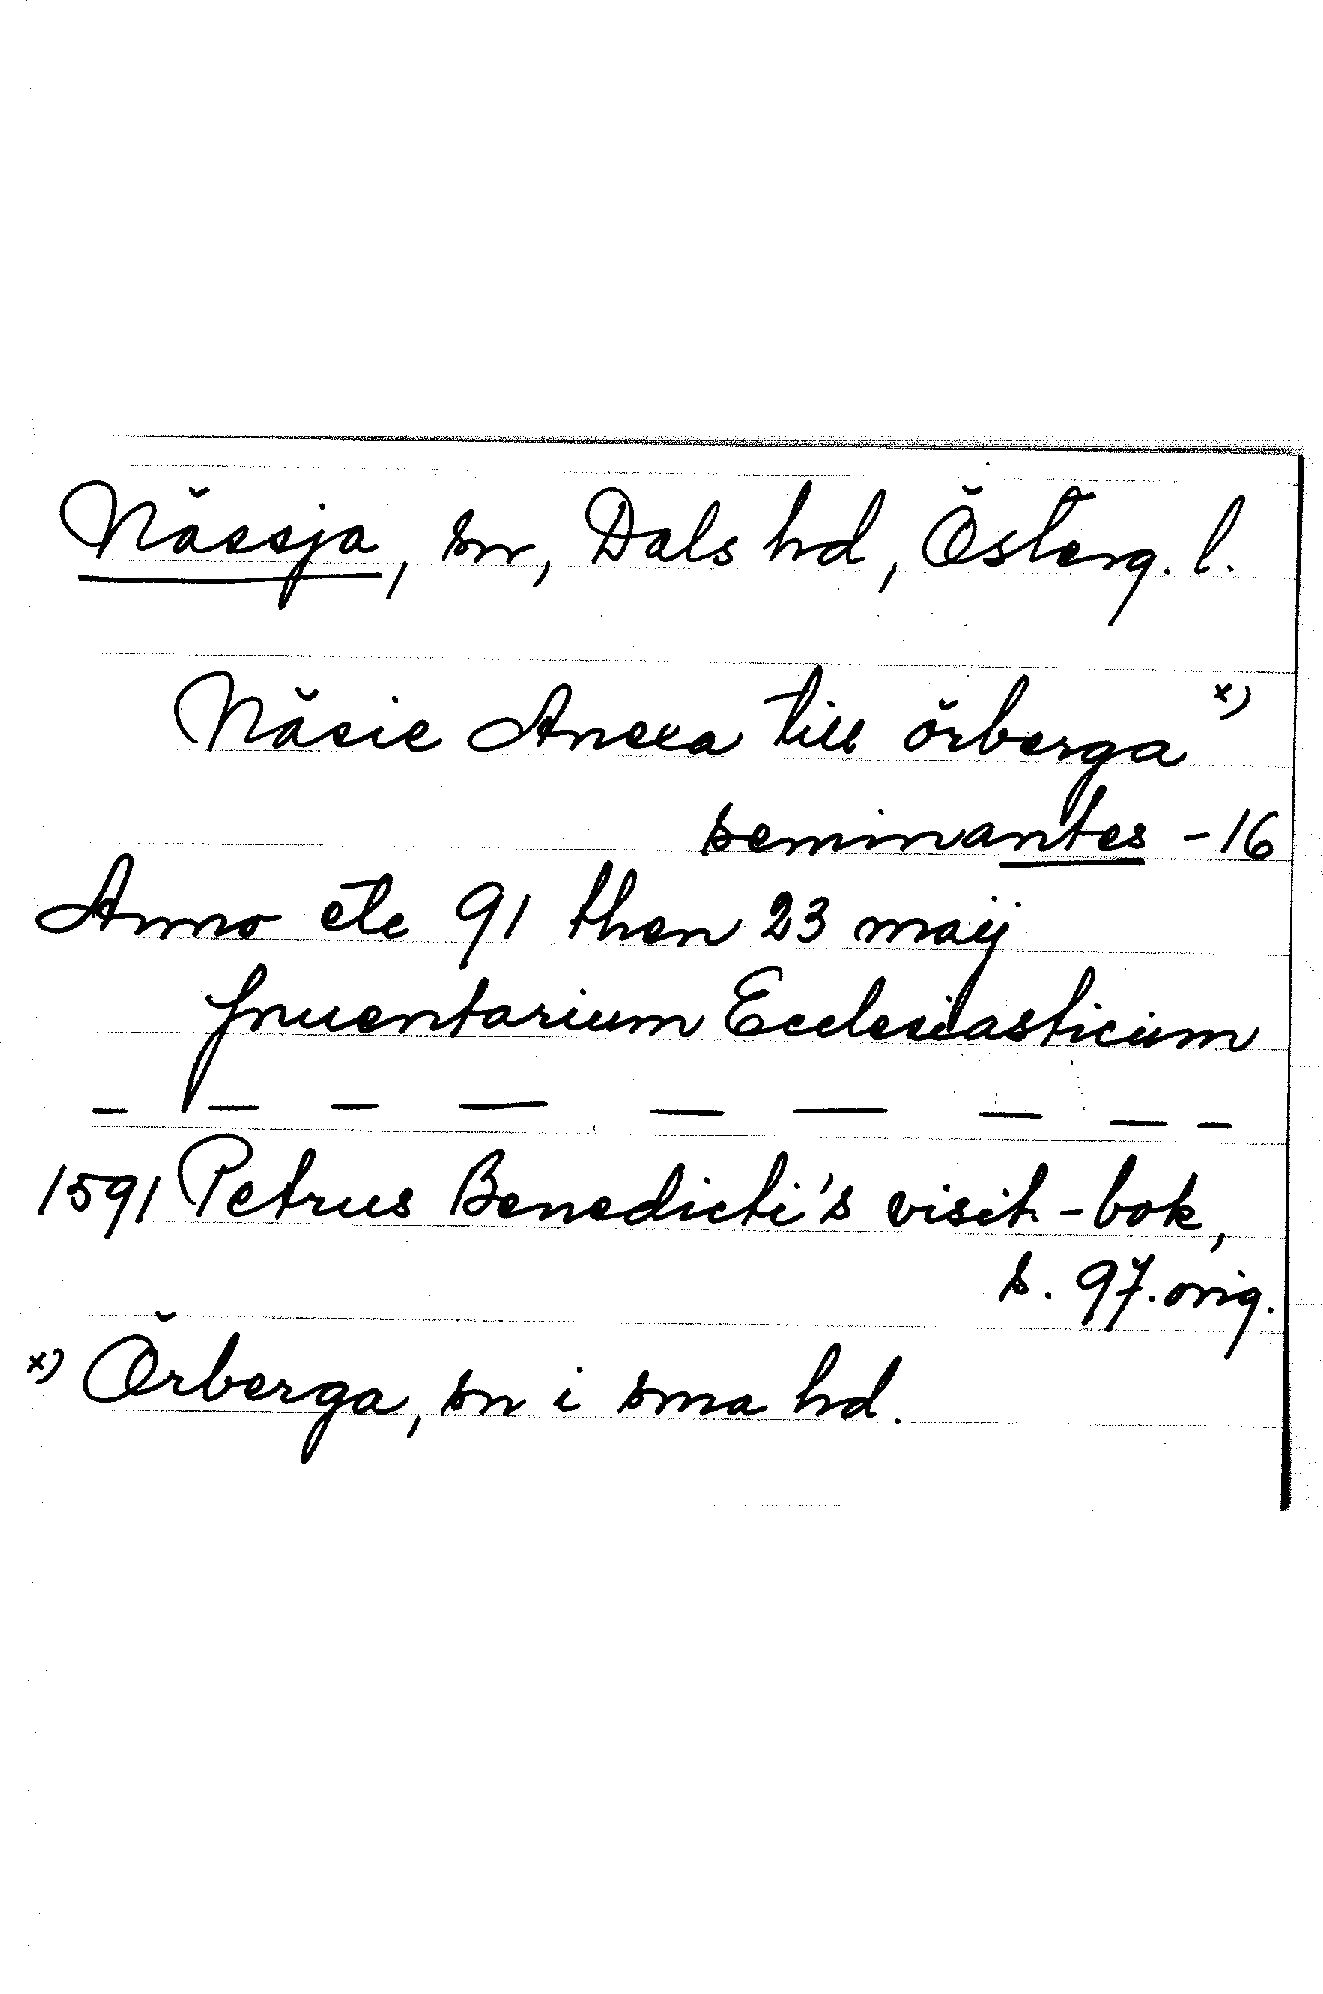 Nässja, sn, Dals hd, Österg. l.
Näsie Anexa till örberga x)
seminantes - 16
Anno etc 91 then 23 maij
Inuentarium Ecclesiasticum
— — — — — — — — —
1591 Petrus Benedicti's visit.-bok,
s. 97. orig.
x) Örberga, sn i sma hd.